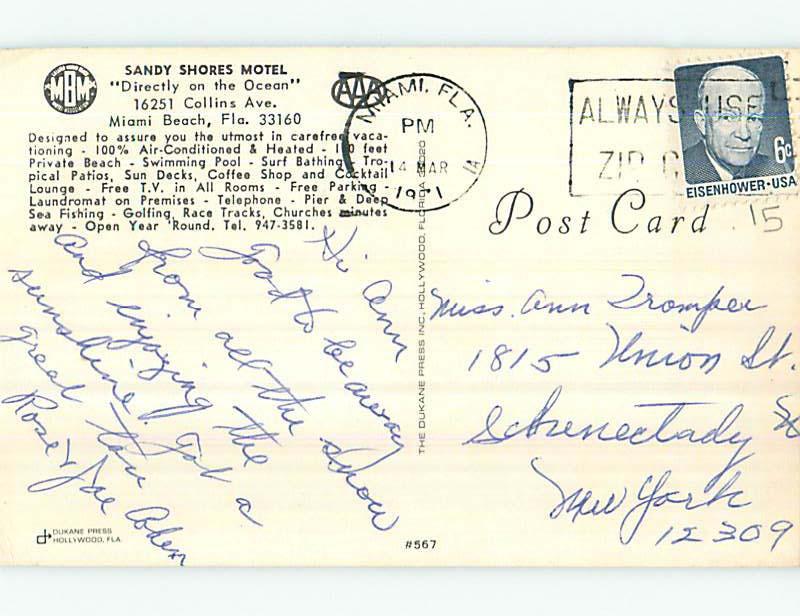 MBM
SANDY SHORES MOTEL
"Directly on the Ocean"
16251 Collins Ave.
Miami Beach, Fla. 33160
Designed to assure you the utmost in carefree vaca-
tioning - 100% Air-Conditioned & Heated - 100 feet
Private Beach - Swimming Pool - Surf Bathing - Tro-
pical Patios, Sun Decks, Coffee Shop and Cocktail
Lounge - Free T.V. in All Rooms - Free Parking -
Laundromat on Premises - Telephone - Pier & Deep
Sea Fishing - Golfing, Race Tracks, Churches minutes
away - Open Year 'Round. Tel. 947-3581.
AAA
MIAMI, FLA.
PM
14 MAR
1971
ALWAYS USE
ZIP C
6c
EISENHOWER·USA
Post Card
.15
Hi Ann
Good to be away
from all the snow
and enjoying the
sunshine. Got a
great tan
Rose & Joe Cohen
THE DUKANE PRESS INC, HOLLYWOOD, FLORIDA 33020
Miss. Ann Tromper
1815 Union St.
Schenectady
New York
12309
DUKANE PRESS
HOLLYWOOD, FLA.
#567